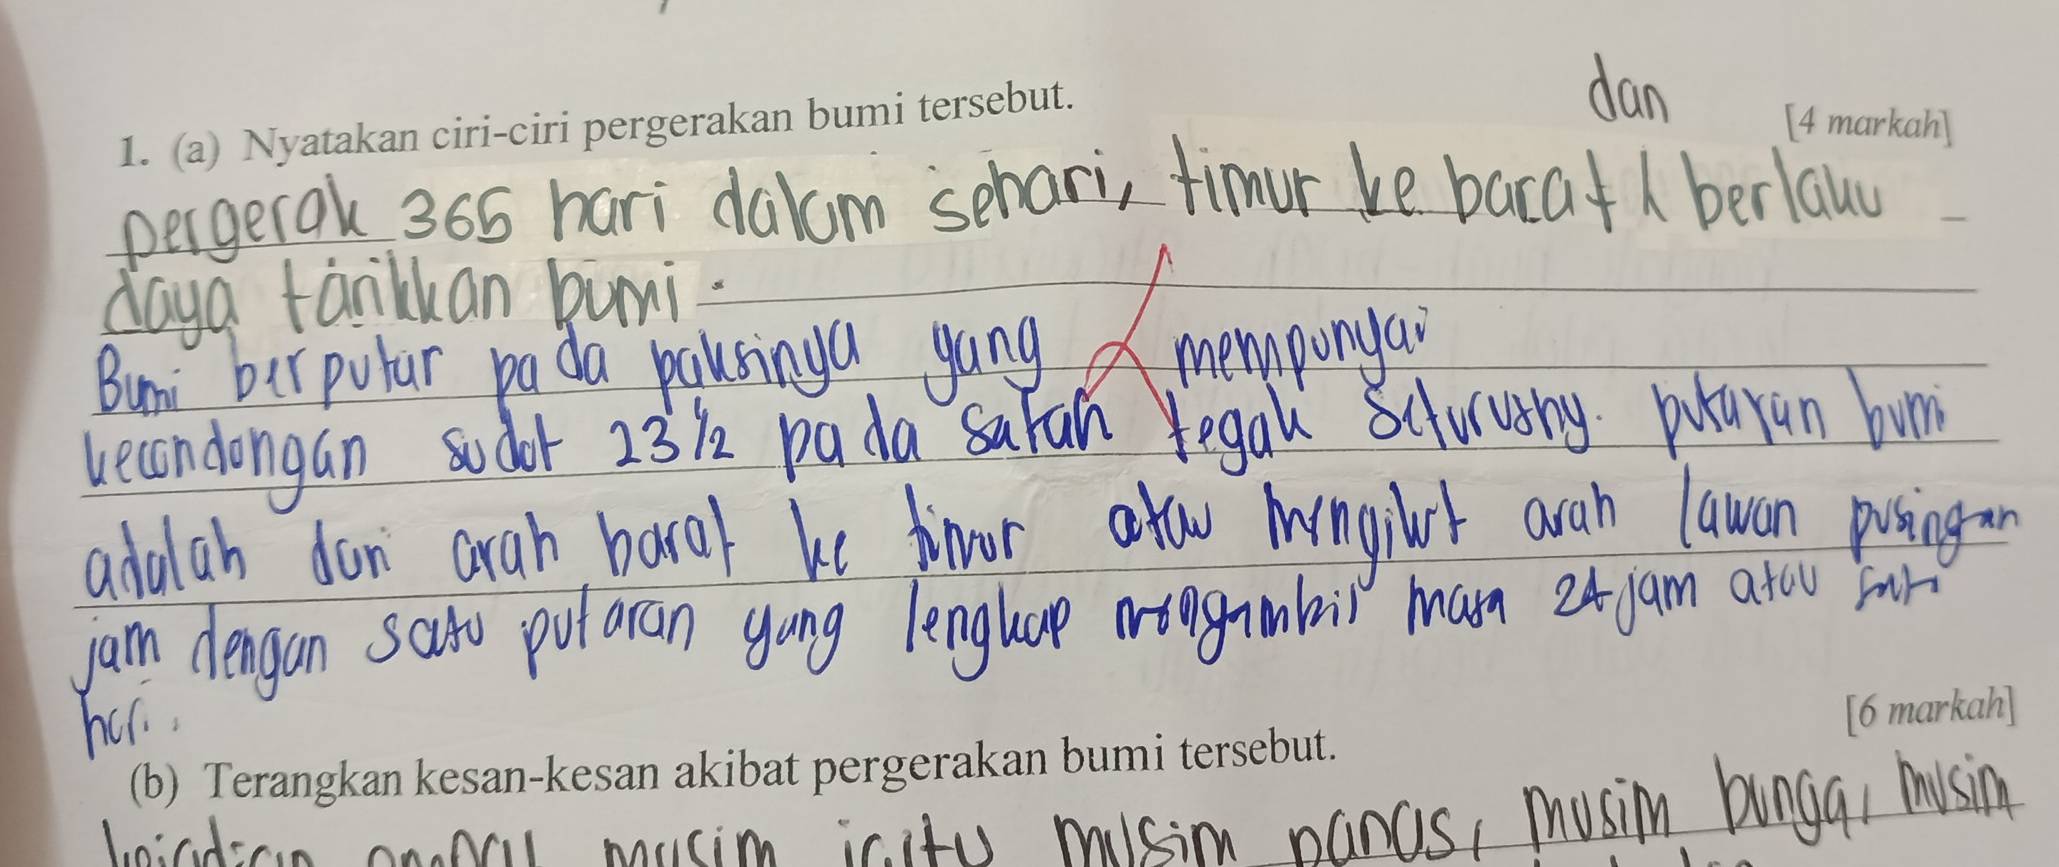 1. (a) Nyatakan ciri-ciri pergerakan bumi tersebut.
[4 markah]
dan
pergerak 365 hari dalam sehari, timur ke barat λ berlaku
daya tarikkan bumi.
Bumi berputar pada paksinya yang mempunyai
kecondongan sudut 23 1/2 pada satah tegak seturusny. putaran bumi
adalah dari arah barat ke timur atau mengikut arah lawan pusingan
jam dengan satu putaran yang lengkap mengambil masa 24 jam atau satu
hari.
[6 markah]
(b) Terangkan kesan-kesan akibat pergerakan bumi tersebut.
musim iaitu musim panas, musim bunga, musim